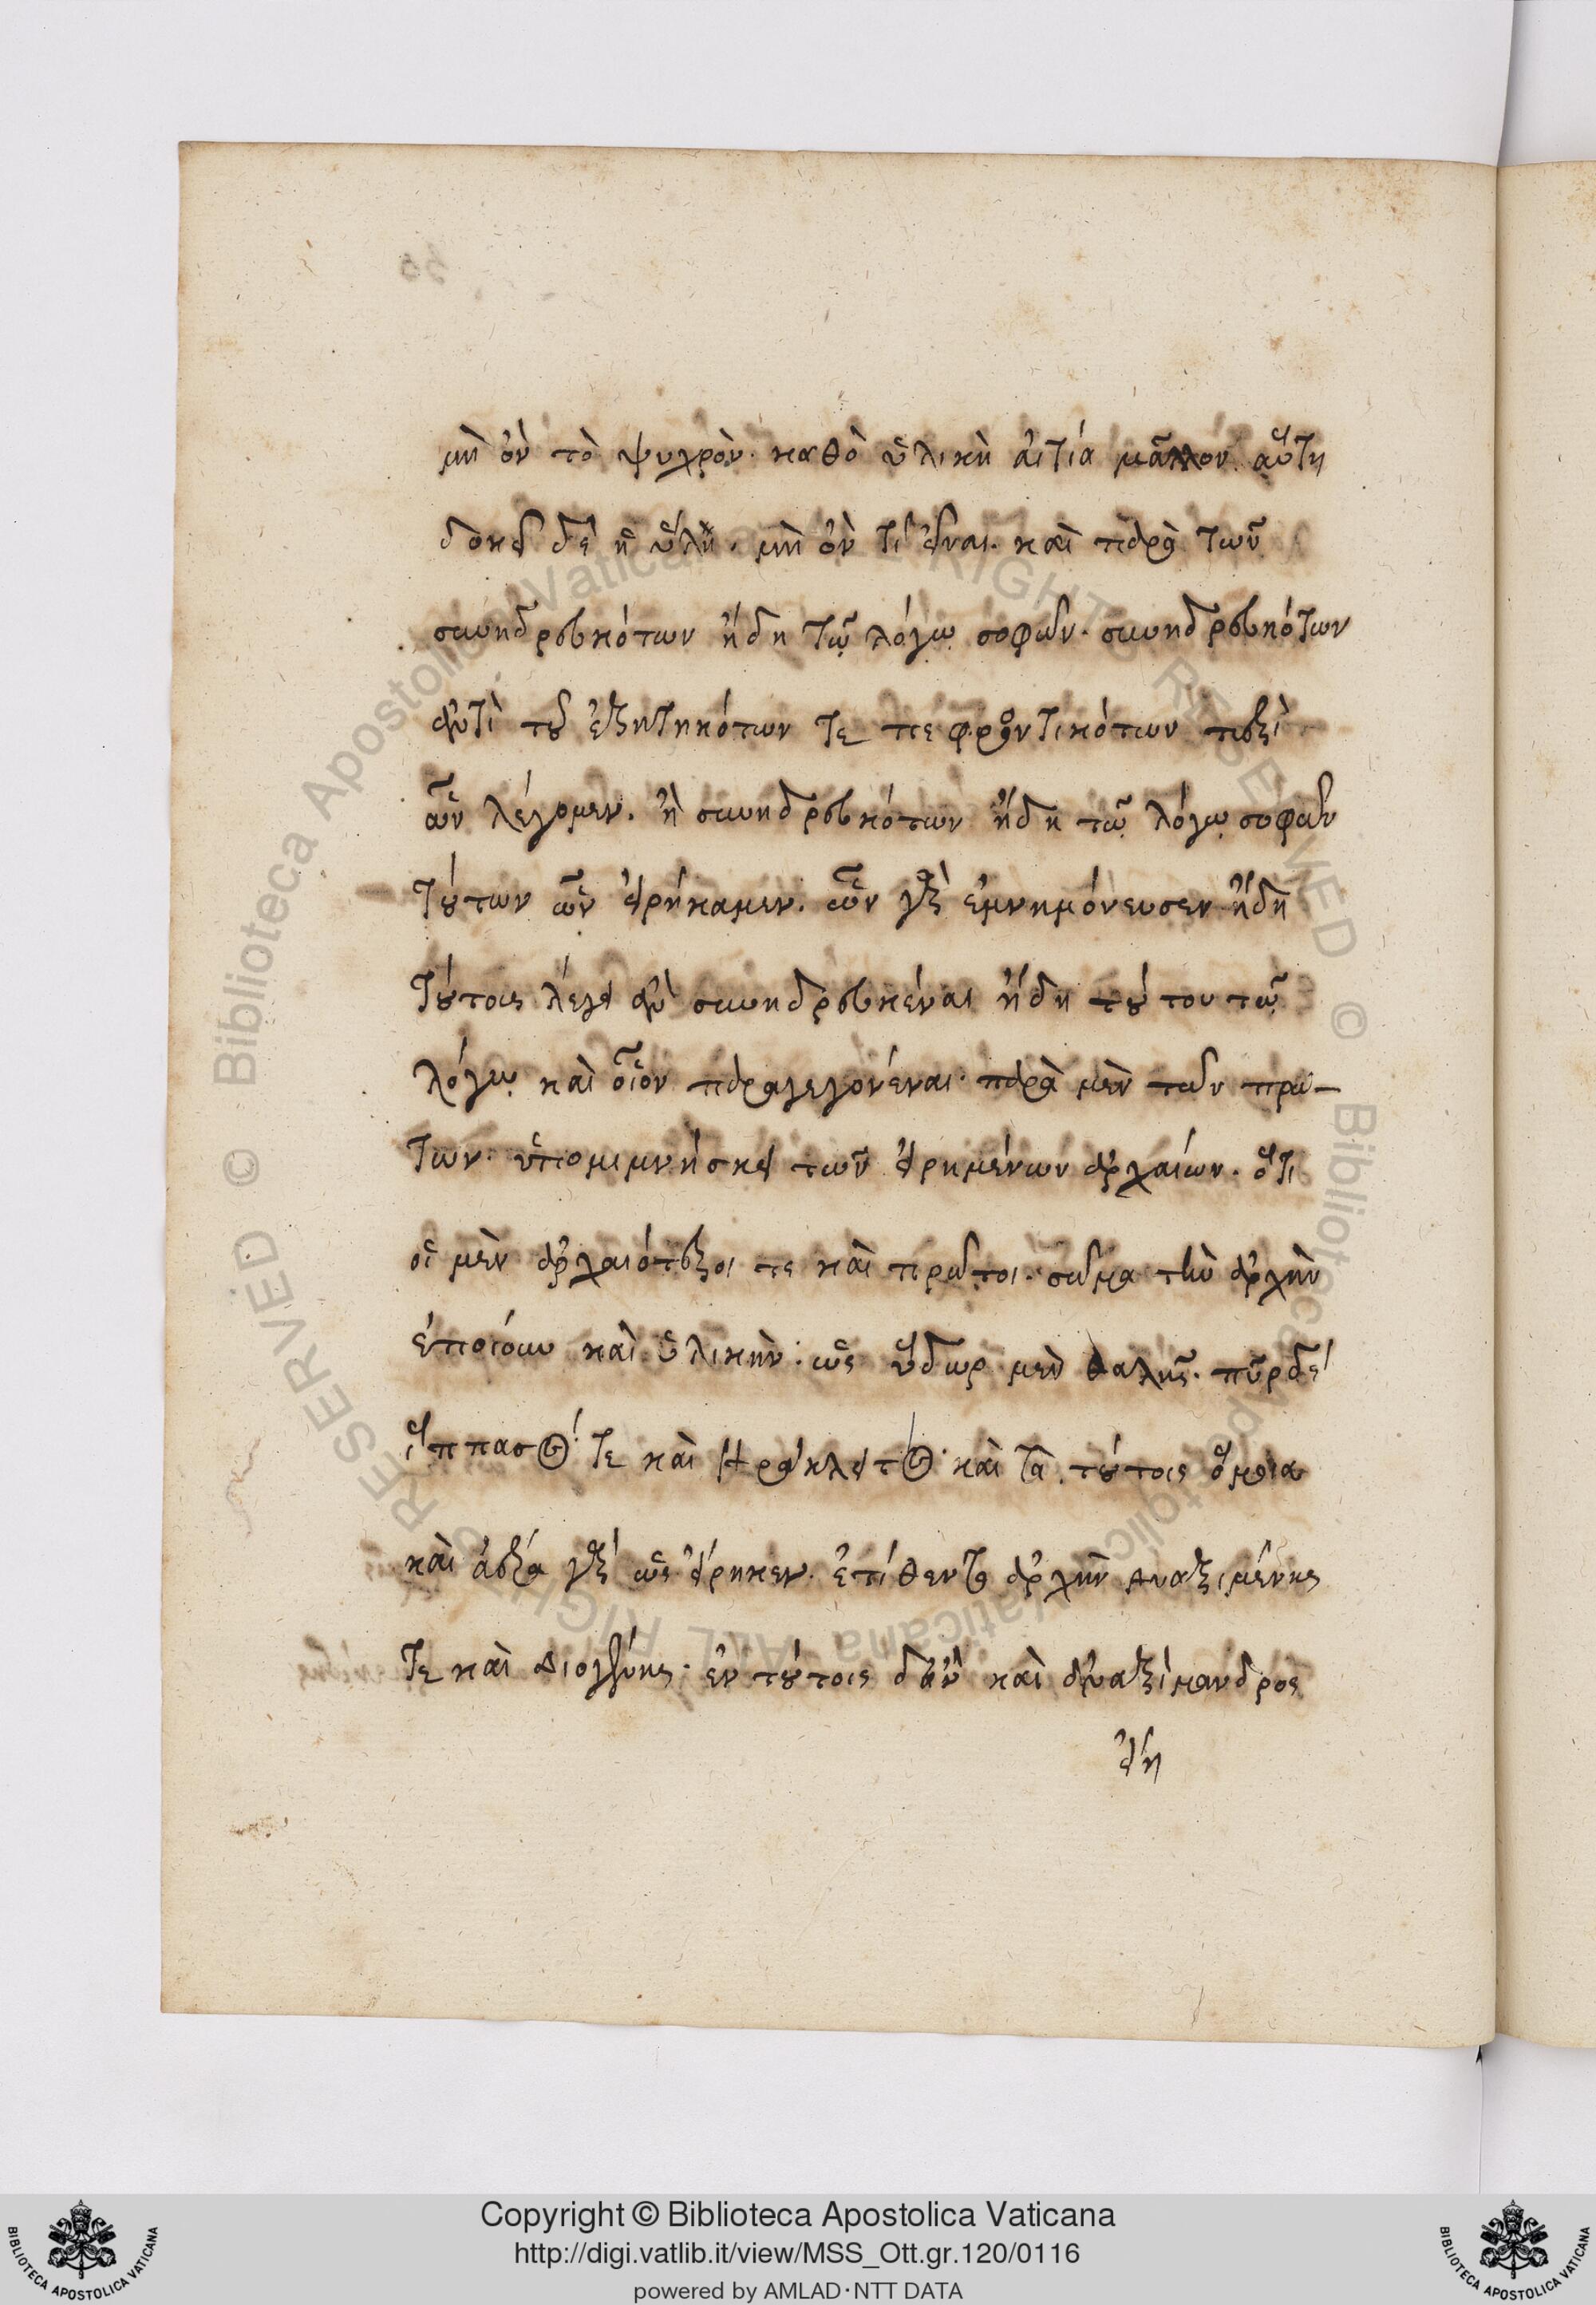 μὴ ὂν τὸ ψυχρὸν. καθὸ ὑλικὴ αἰτία μᾶλλον αὕτη
δοκεῖ δὲ ἡ ὕλη. μὴ ὄν τι εἶναι. καὶ παρὰ τῶν
συνηδρευκότων ἤδη τῷ λόγῳ σοφῶν. συνηδρευκότων
ἀντὶ τοῦ ἐζητηκότων τε πεφροντικότων περὶ
ὧν λέγομεν. ἢ συνηδρευκότων ἤδη τῷ λόγῳ σοφῶν
τούτων ὧν εἰρήκαμεν. ὧν γὰρ ἐμνημόνευσεν ἤδη
τούτοις λέγει ἂν συνηδρευκέναι ἤδη τούτου τῷ
λόγῳ καὶ οἷον παραγεγονέναι. παρὰ μὲν τῶν πρώ-
των. ὑπομιμνήσκει τῶν εἰρημένων ἀρχαίων. ὅτι
οἱ μὲν ἀρχαιότεροι τε καὶ πρῶτοι. σῶμα τὴν ἀρχὴν
ἐποίουν καὶ ὑλικὴν. ὡς ὕδωρ μὲν θαλῆς. πῦρ δὲ
ἵππασος τε καὶ Ηράκλειτος καὶ τὰ τούτοις ὅμοια
καὶ ἀέρα γὰρ ὡς εἴρηκεν. ἐτίθεντο ἀρχὴν Αναξιμένης
τε καὶ Διογένης. ἐν τούτοις δ' ἂν καὶ ἀναξίμανδρος
εἴη
Copyright © Biblioteca Apostolica Vaticana
http://digi.vatlib.it/view/MSS_Ott.gr.120/0116
powered by AMLAD·NTT DATA